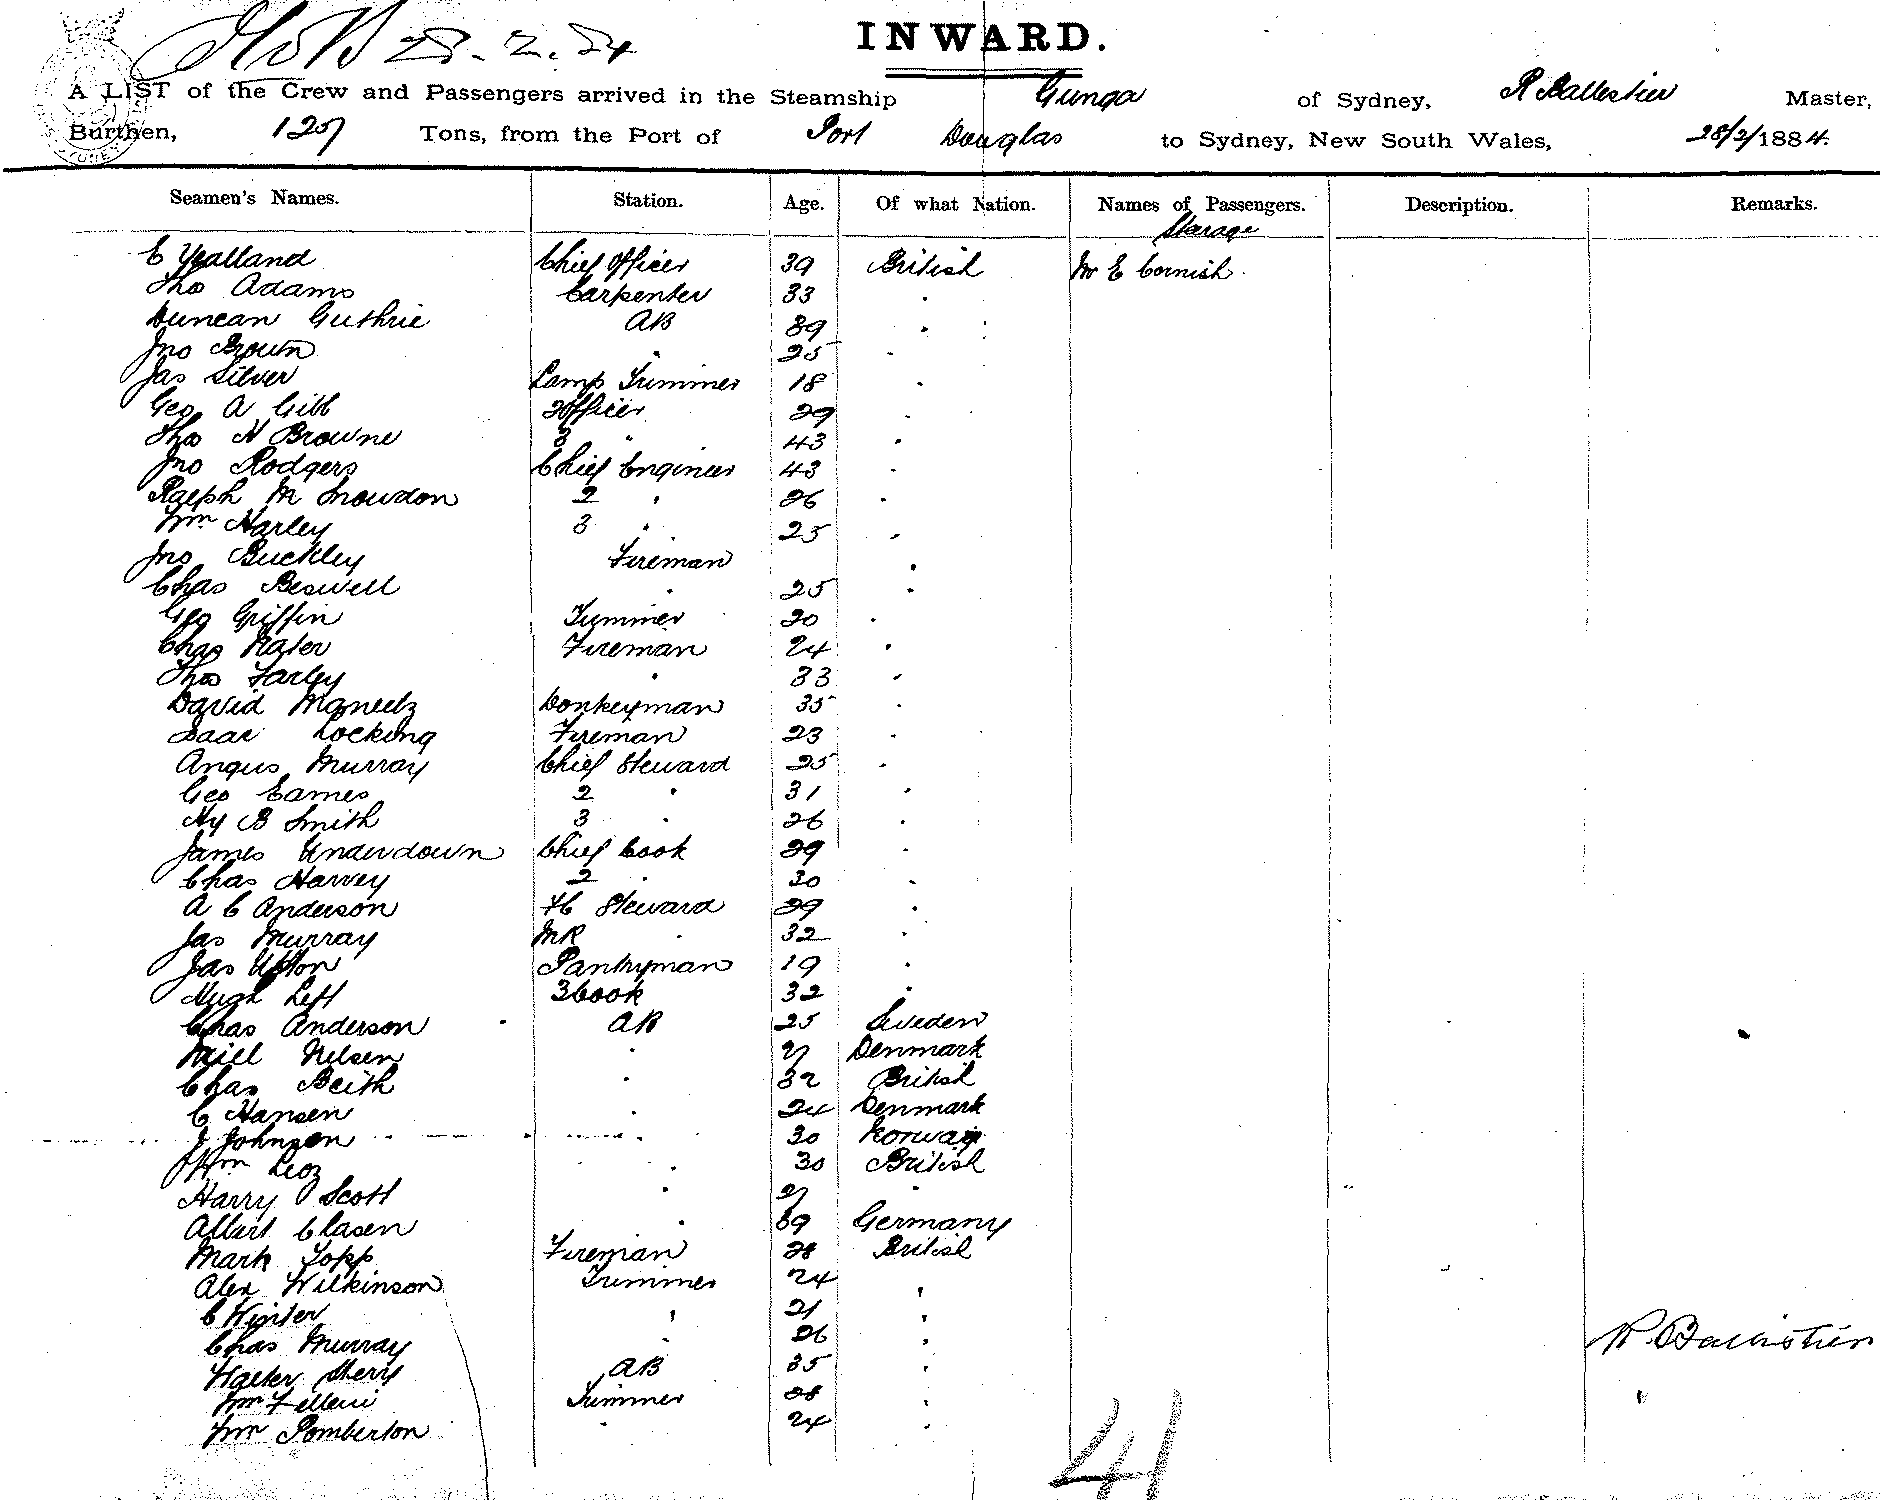 28.2.84
INWARD.
A LIST of the Crew and Passengers arrived in the Steamship Gunga of Sydney, R Ballestier Master,
Burthen, 1257 Tons, from the Port of Port Douglas to Sydney, New South Wales, 28/2/1884.
Seamen's Names. Station. Age. Of what Nation. Names of Passengers. Description. Remarks.
Starage
E Yealland Chief Officer 39 British Mr E Cornish
Thos Adams Carpenter 33 "
Duncan Guthrie AB 39 "
Jno Brown " 25 "
Jas Silver Lamp Trimmer 18 "
Geo A Gibb 2 Officer 29 "
Thos H Browne 3 " 43 "
Jno Rodgers Chief Engineer 43 "
Ralph M Snowdon 2 " 26 "
Wm Harley 3 " 25 "
Jno Buckley Fireman "
Chas Beswell " 25 "
Geo Griffin Trimmer 20 "
Chas Kater Fireman 24 "
Thos Farley " 33 "
David Donkeyman 35 "
Isaac Locking Fireman 23 "
Angus Murray Chief Steward 25 "
Geo Eames 2 " 31 "
Hy B Smith 3 " 26 "
James Underdown Chief Cook 29 "
Chas Harvey 2 " 30 "
A C Anderson Steward 29 "
Jas Murray MR " 32 "
Jas Upton Pantryman 19 "
Hugh Left 3 Cook 32 "
Chas Anderson AB 25 Sweden
Neill Nelsen " 27 Denmark
Chas Beith " 32 British
C Hansen " 24 Denmark
J Johnson " 30 Norway
Wm " 30 British
Harry Scott " 27 "
Albert Clasen " 39 Germany
Mark Topp Fireman 28 British
Alex Wilkinson Trimmer 24 "
C Winter " 21 "
Chas Murray " 26 "
R Ballestier
Walter Sherry AB 35 "
Wm Trimmer 28 "
Wm Pomberton " 24 "
41